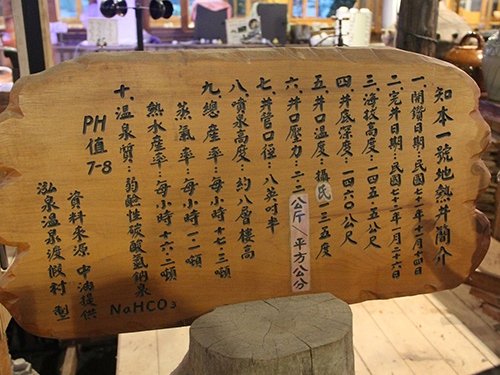 知本一號地熱井簡介
一、開鑽日期：民國七十一年十月十四日
二、完井日期：民國七十二年一月二十六日
三、海拔高度：一四五．五公尺
四、井底深度：一四六〇公尺
五、井口溫度：攝氏一三五度
六、井口壓力：二．二公斤／平方公分
七、井管口徑：八英吋半
八、噴泉高度：約八層樓高
九、總產率：每小時十七．三噸
蒸氣率：每小時一．一噸
熱水產率：每小時十六．二噸
十、溫泉質：弱鹼性碳酸氫鈉泉
NaHCO3
PH值
7-8
資料來源 中油提供
泓泉溫泉渡假村 製